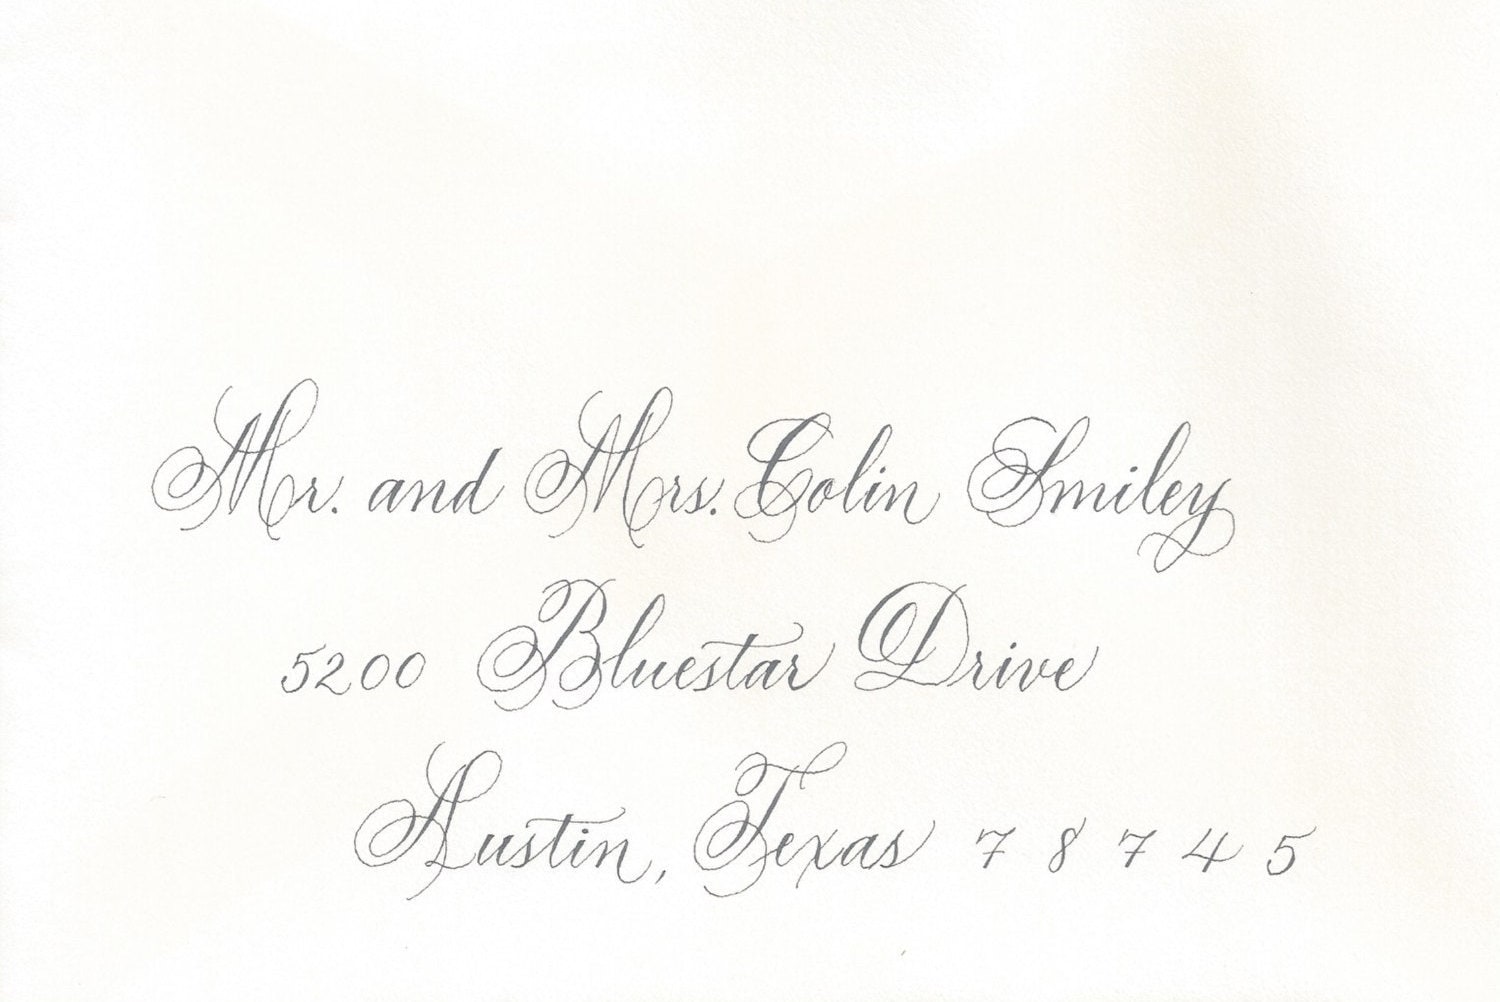 Mr. and Mrs. Colin Smiley
5200 Bluestar Drive
Austin, Texas 78745